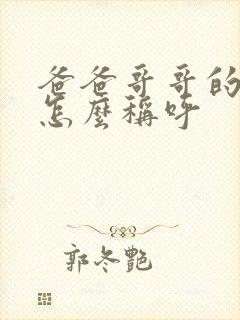 爸爸哥哥的
怎麼稱呼
郭冬艷